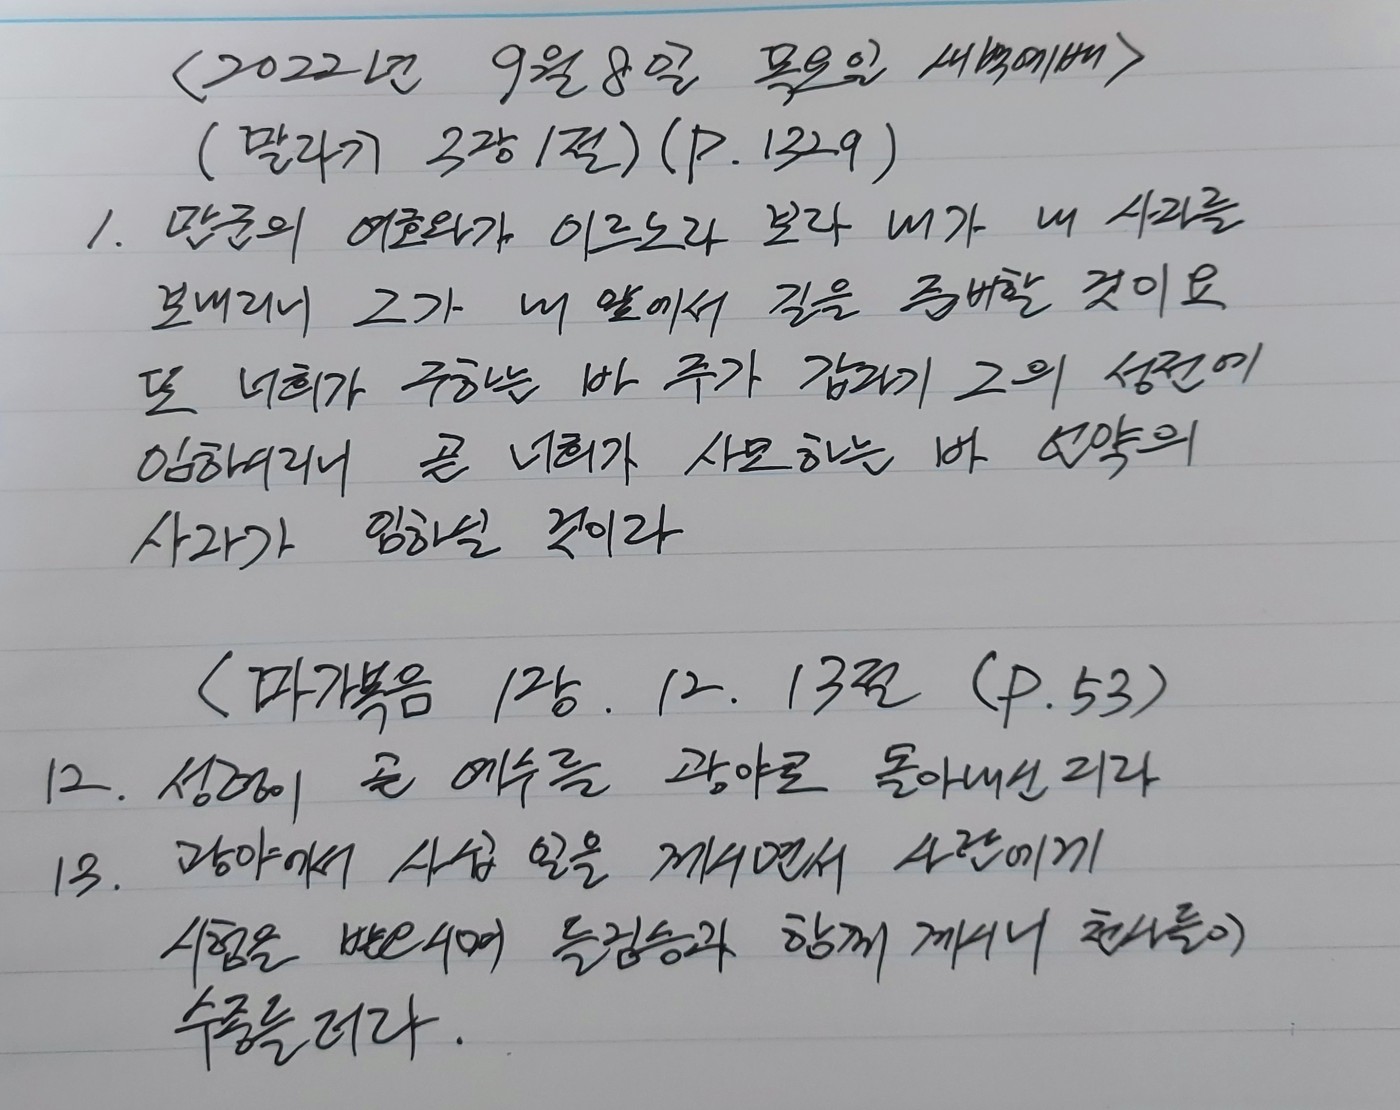 <2022년 9월 8일 목요일 새벽예배>
(말라기 3장 1절) (P. 1329)
1. 만군의 여호와가 이르노라 보라 내가 내 사자를
보내리니 그가 내 앞에서 길을 준비할 것이요
또 너희가 구하는 바 주가 갑자기 그의 성전에
임하시리니 곧 너희가 사모하는 바 언약의
사자가 임하실 것이라
<마가복음 1장. 12. 13절 (P. 53)
12. 성령이 곧 예수를 광야로 몰아내신지라
13. 광야에서 사십 일을 계시면서 사탄에게
시험을 받으시며 들짐승과 함께 계시니 천사들이
수종들더라.